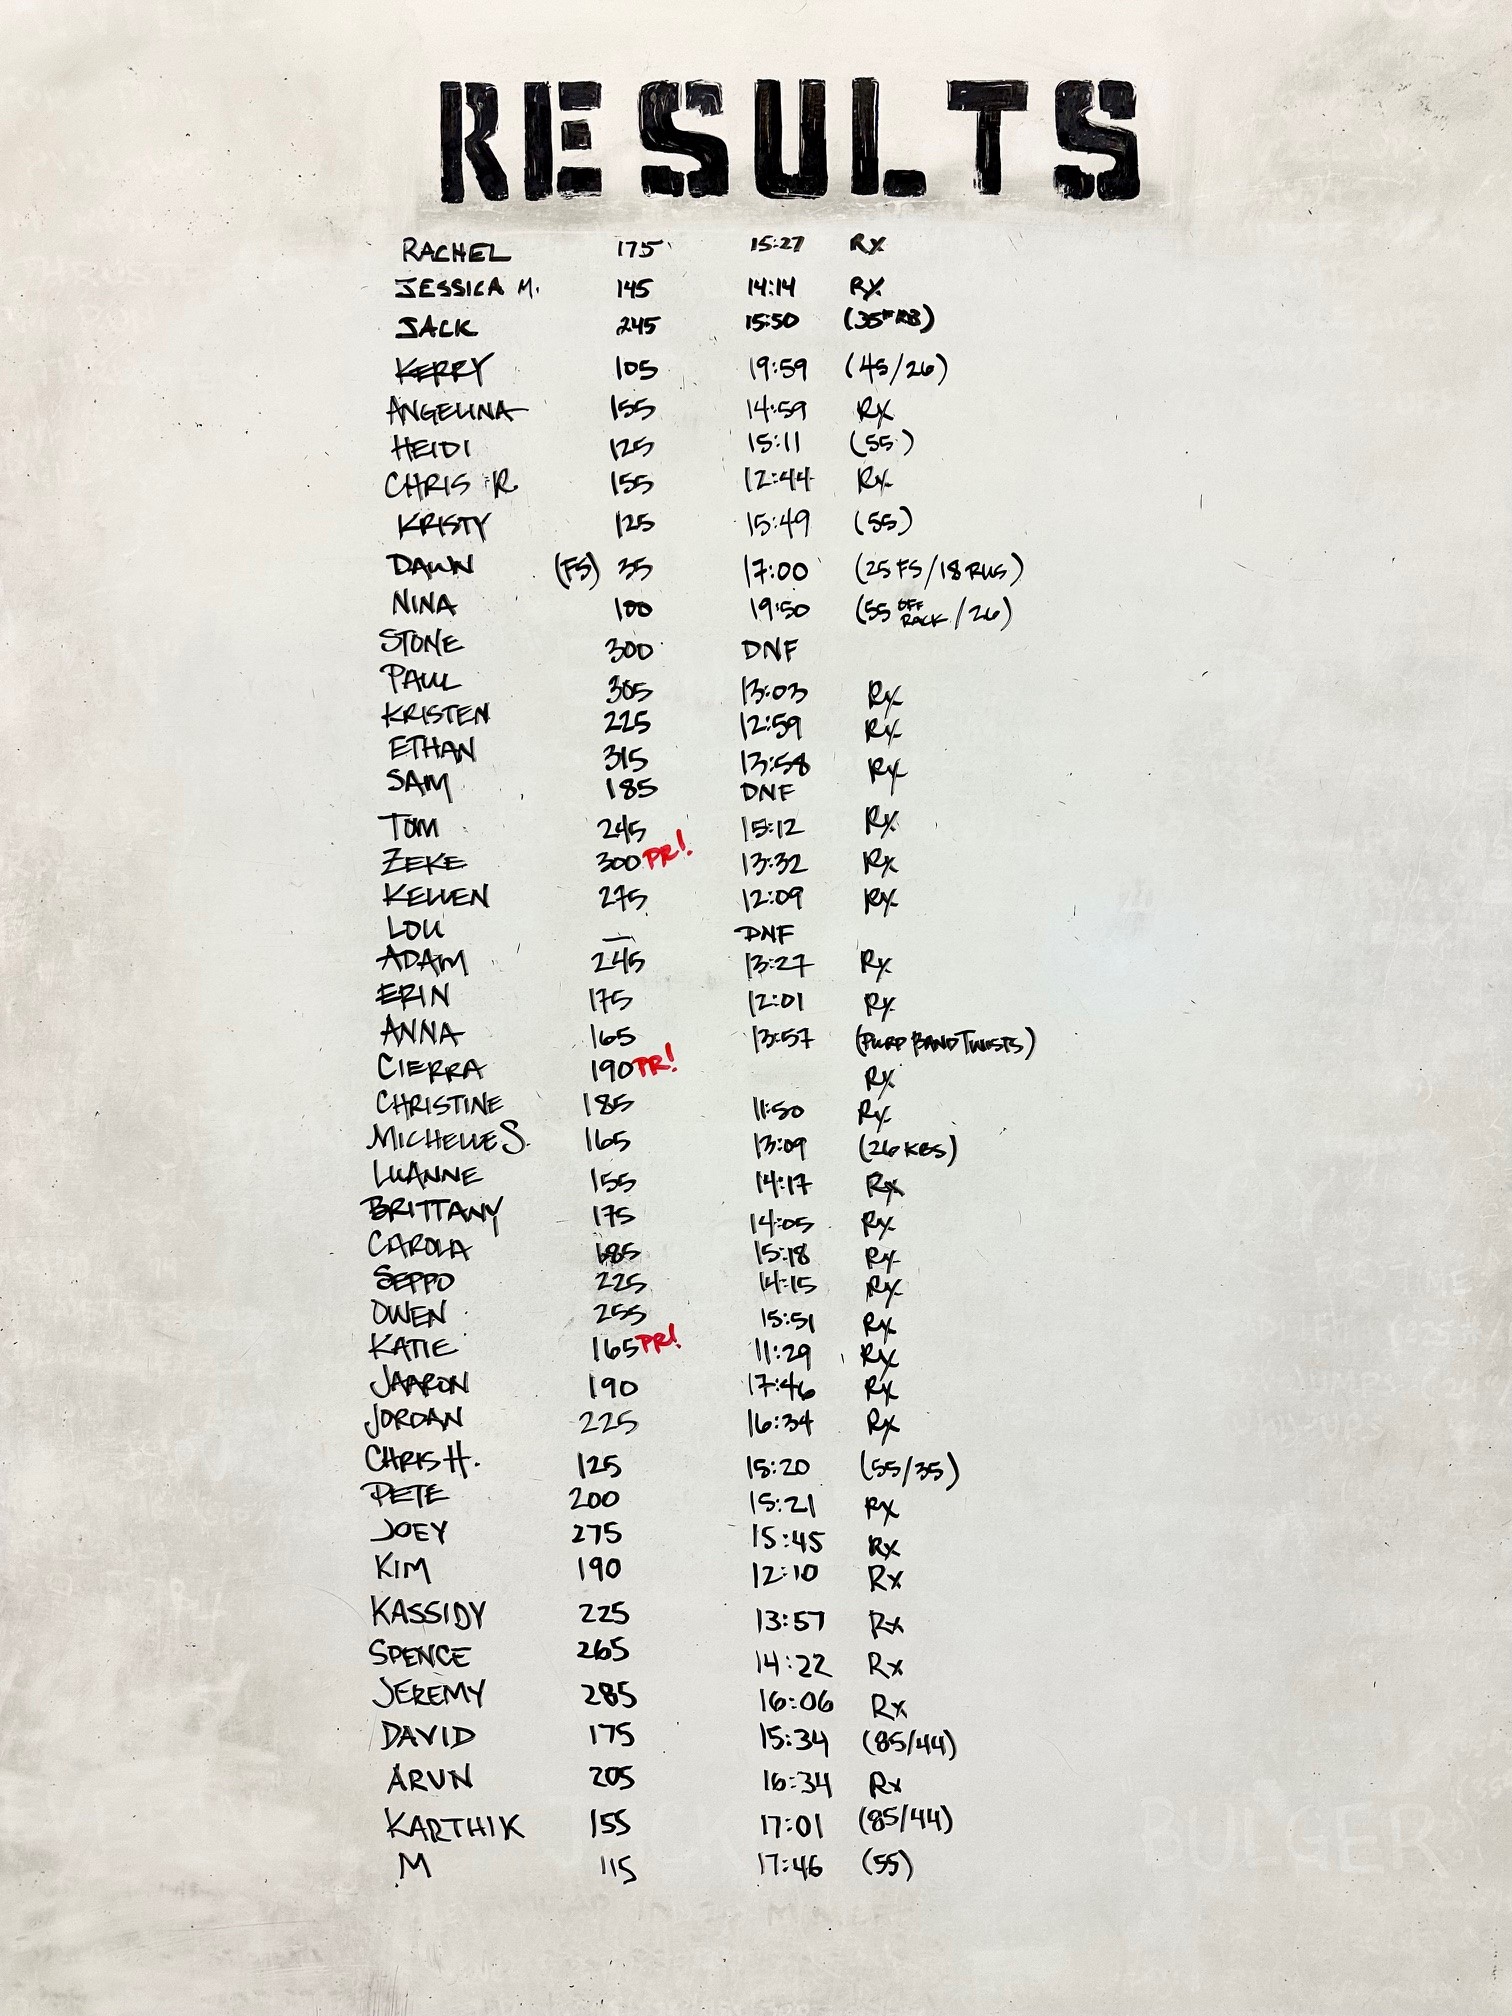 RESULTS
RACHEL 175 15:27 Rx
JESSICA M. 145 14:14 Rx
JACK 245 15:50 (35# KB)
KERRY 105 19:59 (45/26)
ANGELINA 155 14:59 Rx
HEIDI 125 15:11 (55)
CHRIS R. 155 12:44 Rx
KRISTY 125 15:49 (55)
DAWN (FS) 35 17:00 (25 FS/18 RUS)
NINA 100 19:50 (55 OFF RACK/26)
STONE 300 DNF
PAUL 305 13:03 Rx
KRISTEN 225 12:59 Rx
ETHAN 315 13:58 Rx
SAM 185 DNF
TOM 245 15:12 Rx
ZEKE 300 PR! 13:32 Rx
KELLEN 275 12:09 Rx
LOU — DNF
ADAM 245 13:27 Rx
ERIN 175 12:01 Rx
ANNA 165 13:57 (PURP BAND TWISTS)
CIERRA 190 PR! Rx
CHRISTINE 185 11:50 Rx
MICHELLE S. 165 13:09 (26 KBS)
LUANNE 155 14:17 Rx
BRITTANY 175 14:05 Rx
CAROLA 15:18 Rx
SEPPO 225 14:15 Rx
OWEN 255 15:51 Rx
KATIE 165 PR! 11:29 Rx
JAARON 190 17:46 Rx
JORDAN 225 16:34 Rx
CHRIS H. 125 15:20 (55/35)
PETE 200 15:21 Rx
JOEY 275 15:45 Rx
KIM 190 12:10 Rx
KASSIDY 225 13:57 Rx
SPENCE 265 14:22 Rx
JEREMY 285 16:06 Rx
DAVID 175 15:34 (85/44)
ARUN 205 16:34 Rx
KARTHIK 155 17:01 (85/44)
M 115 17:46 (55)
BULGER